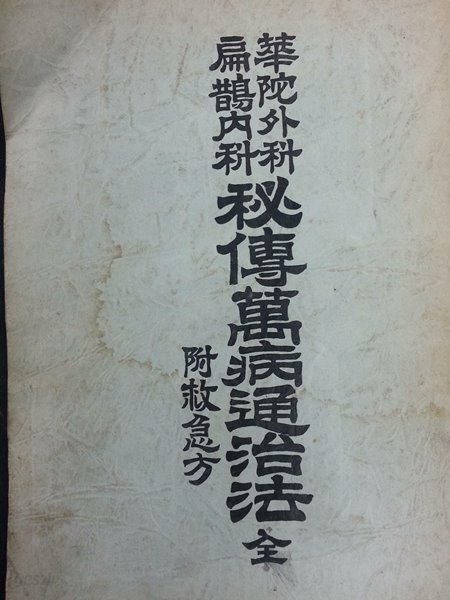 華陀外科
扁鵲内科
秘傳萬病通治法 全
附救急方